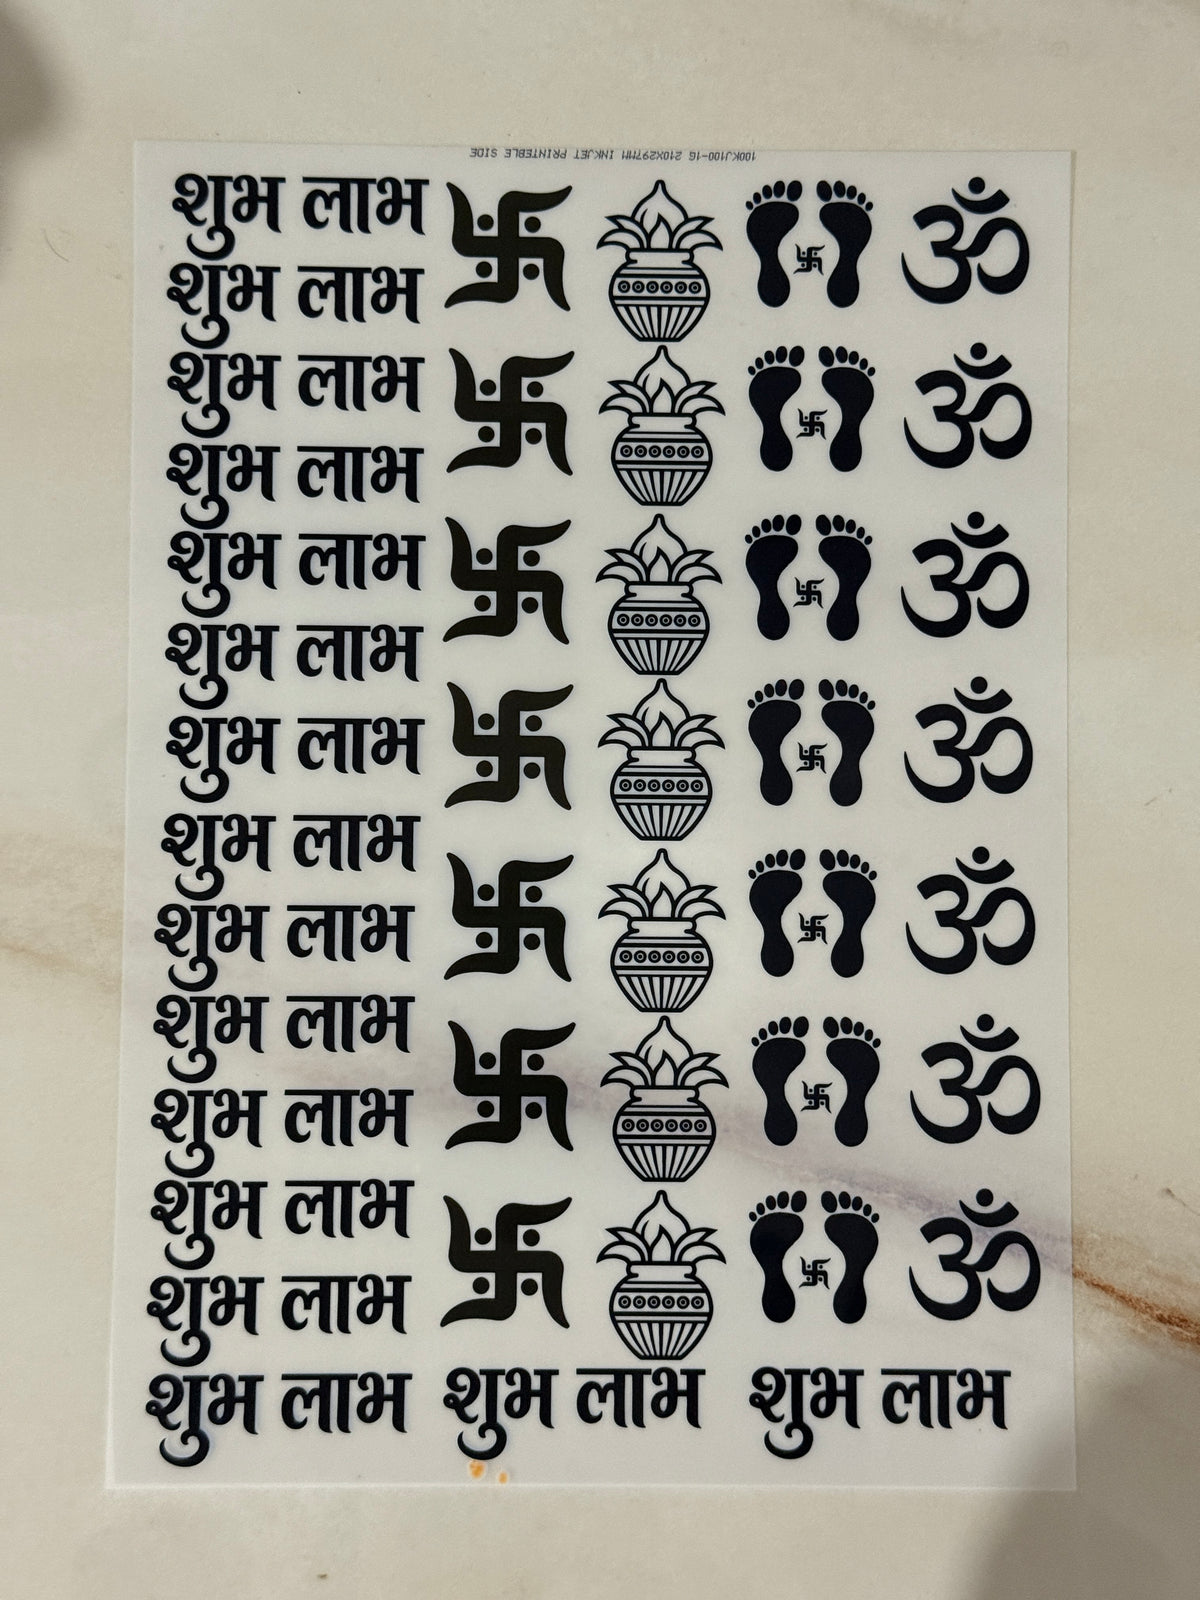 100KJ100-1G 210X297MM INKJET PRINTEBLE SIDE
शुभ लाभ
शुभ लाभ
शुभ लाभ
शुभ लाभ
शुभ लाभ
शुभ लाभ
शुभ लाभ
शुभ लाभ
शुभ लाभ
शुभ लाभ
शुभ लाभ
शुभ लाभ
शुभ लाभ
ॐ
ॐ
ॐ
ॐ
ॐ
ॐ
ॐ
शुभ लाभ शुभ लाभ शुभ लाभ